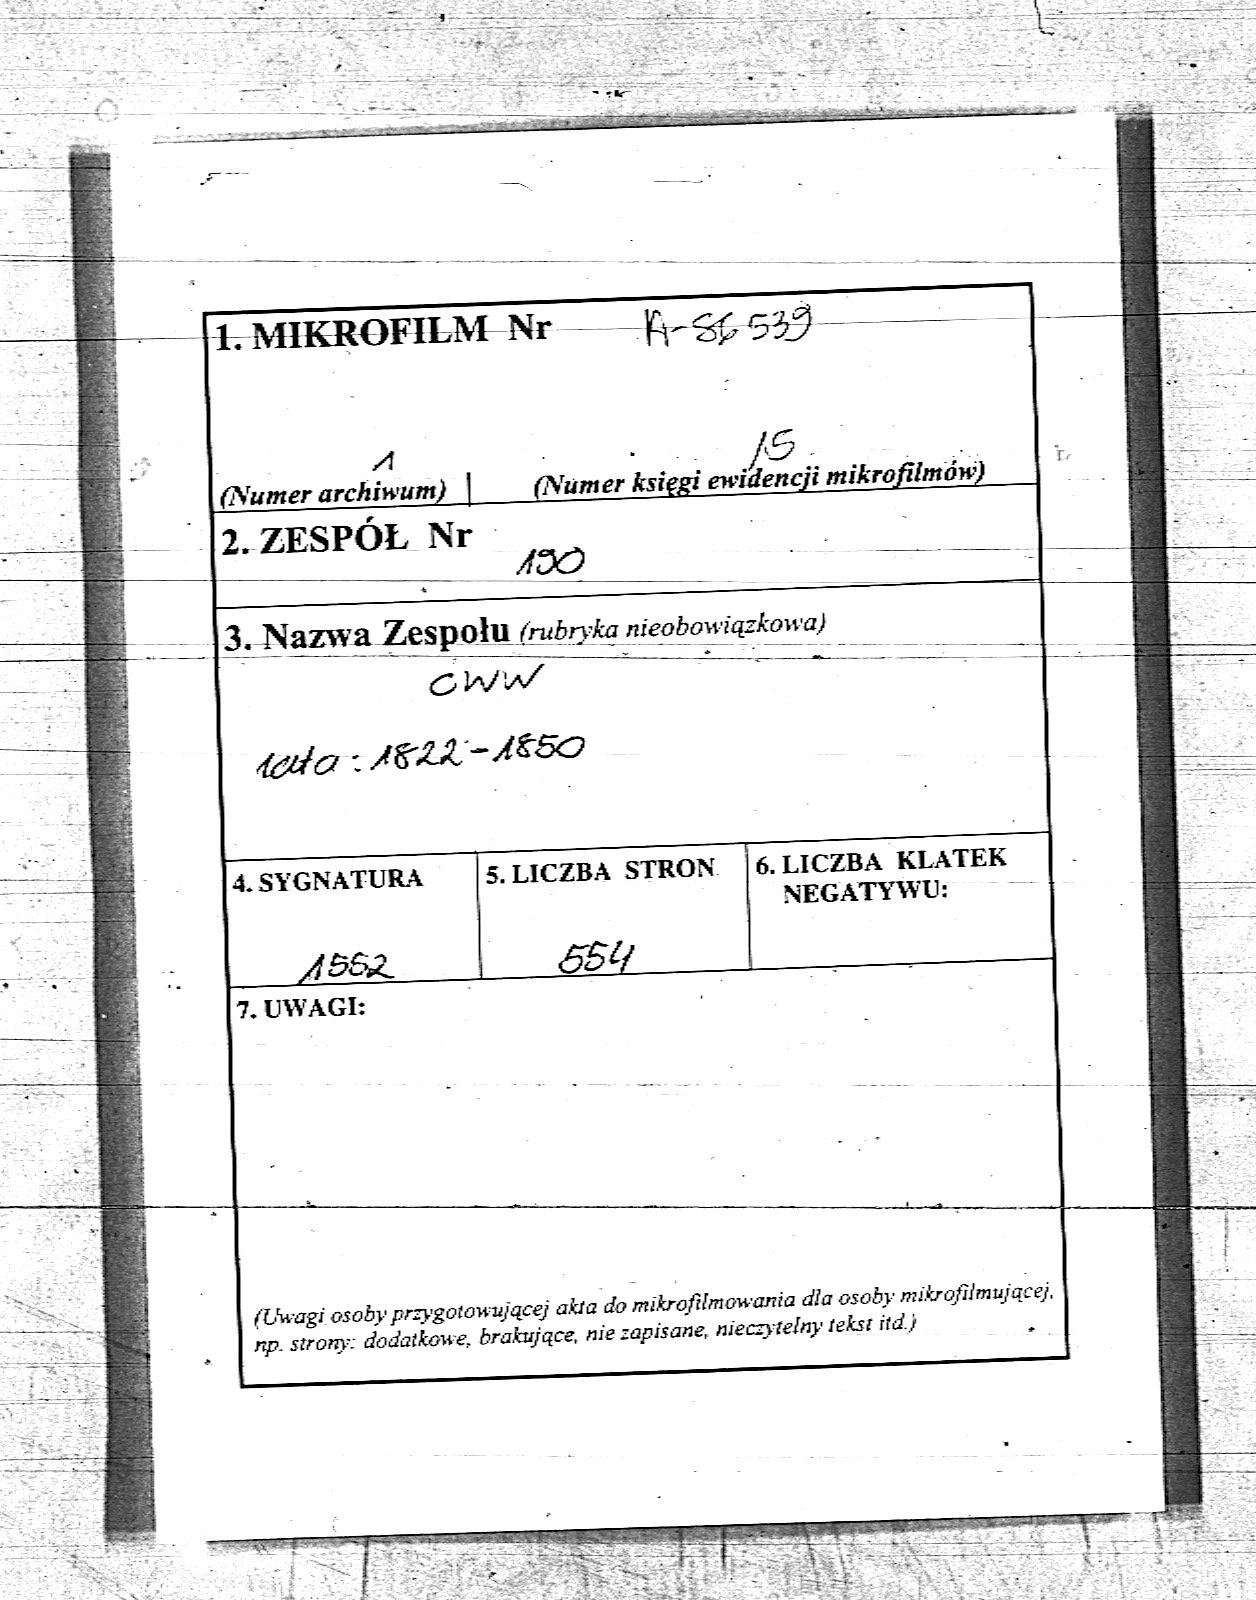 1. MIKROFILM Nr A-86539
1 15
(Numer archiwum) | (Numer księgi ewidencji mikrofilmów)
2. ZESPÓŁ Nr
190
3. Nazwa Zespołu (rubryka nieobowiązkowa)
CWW
lata: 1822-1850
4. SYGNATURA 5. LICZBA STRON 6. LICZBA KLATEK
NEGATYWU:
1552 554
7. UWAGI:
(Uwagi osoby przygotowującej akta do mikrofilmowania dla osoby mikrofilmującej,
np. strony: dodatkowe, brakujące, nie zapisane, nieczytelny tekst itd.)